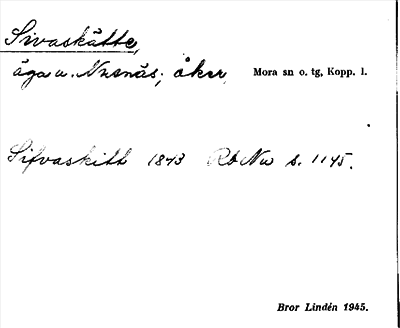 Sivaskätte,
äga u. Nusnäs; åker, Mora sn o. tg, Kopp. l.
Sifvaskitt 1843 Rb Nu s. 1145.
Bror Lindén 1945.